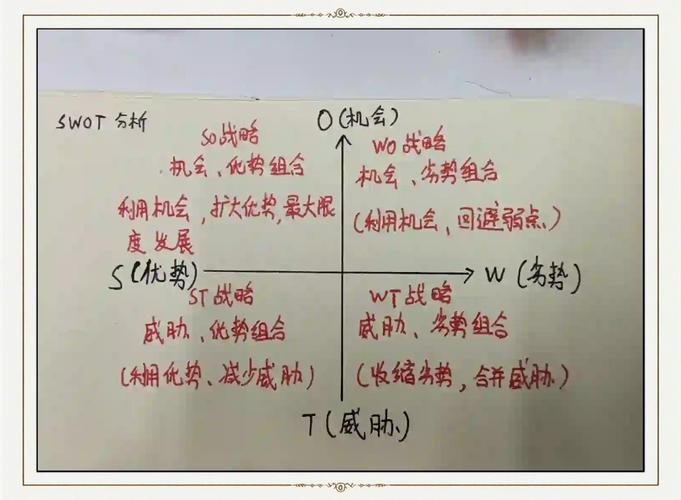 SWOT 分析
O(机会)
SO战略
机会、优势组合
利用机会,扩大优势,最大限
度发展
WO战略
机会、劣势组合
(利用机会、回避弱点)
S(优势)
W(劣势)
ST战略
威胁、优势组合
(利用优势、减少威胁)
WT战略
威胁、劣势组合
(收缩劣势,合并威胁)
T(威胁)